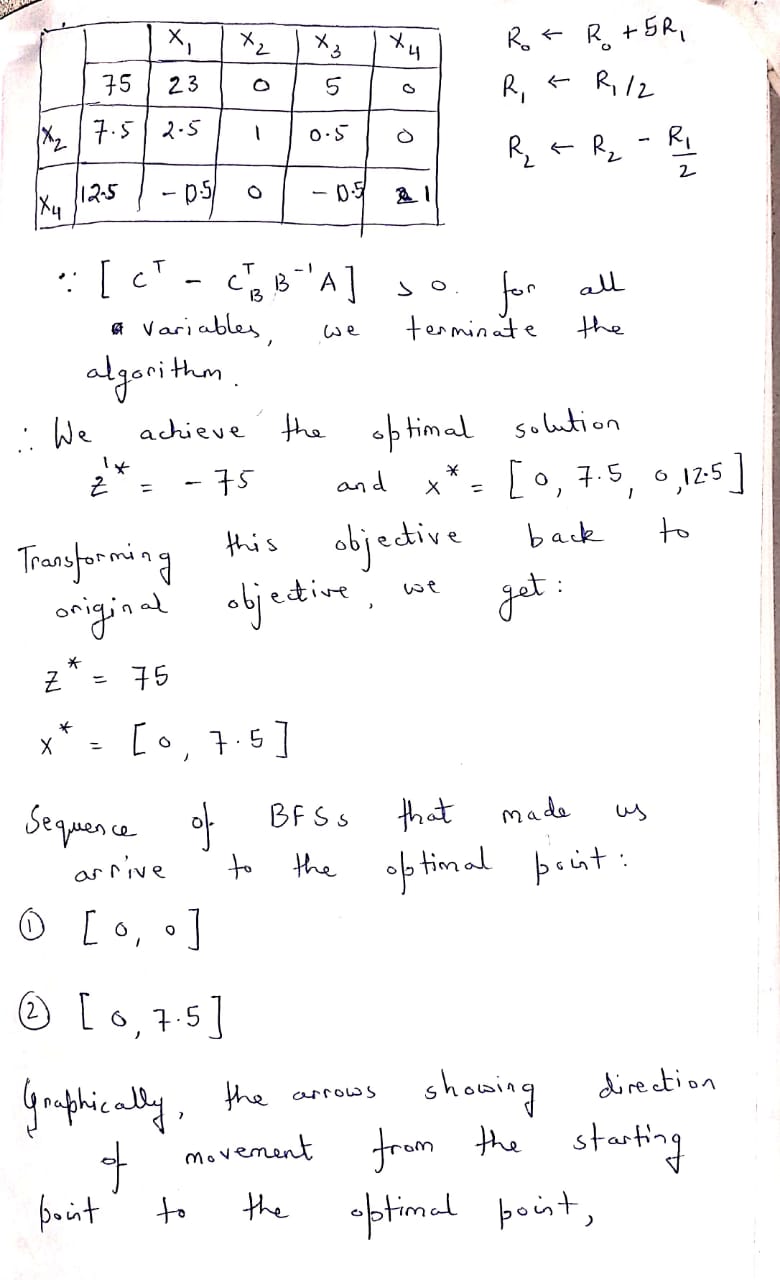 X₁ X₂ X₃ X₄
75 23 0 5 0
X₂ 7.5 2.5 1 0.5 0
X₄ 12.5 -0.5 0 -0.5 1
R₀ ← R₀ + 5R₁
R₁ ← R₁/2
R₂ ← R₂ - R₁/2
∵ [ Cᵀ - C_Bᵀ B⁻¹A ] ≥ 0 for all
variables, we terminate the
algorithm.
∴ We achieve the optimal solution
z'* = -75 and x* = [0, 7.5, 0, 12.5]
Transforming this objective back to
original objective, we get:
z* = 75
x* = [0, 7.5]
Sequence of BFSs that made us
arrive to the optimal point:
① [0, 0]
② [0, 7.5]
Graphically, the arrows showing direction
of movement from the starting
point to the optimal point,